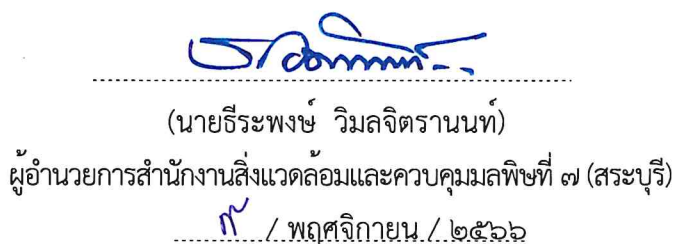 (นายธีระพงษ์ วิมลจิตรานนท์)
ผู้อำนวยการสำนักงานสิ่งแวดล้อมและควบคุมมลพิษที่ ๗ (สระบุรี)
/ พฤศจิกายน / ๒๕๖๖